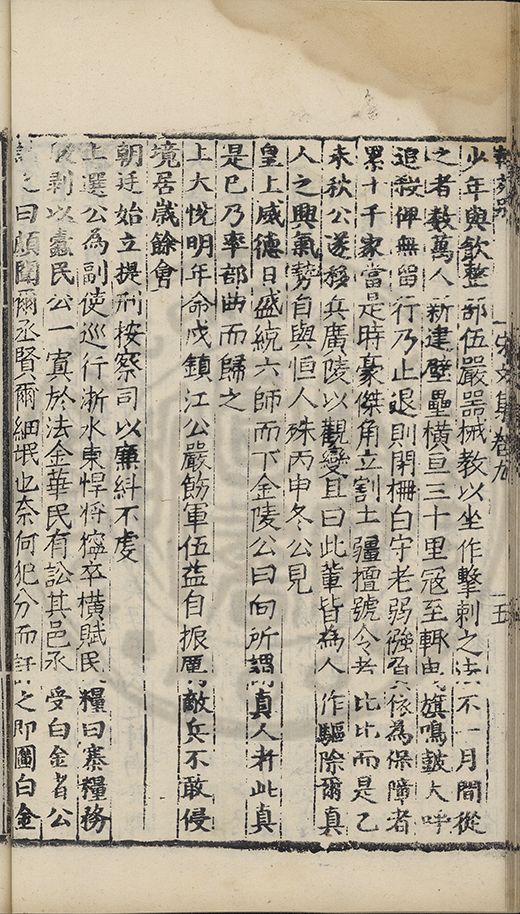 宋文集卷九
五
少年與飲整部伍嚴器械教以坐作擊刺之法不一月間從
之者數萬人新建壁壘橫亘三十里寇至輒出旗鳴鼓大呼
追殺俾無留行乃止退則開柵自守老弱強肩依為保障者
累十千家當是時豪傑角立割土疆擅號令者比比而是乙
未秋公遂移兵廣陵以觀變且曰此輩皆為人作驅除爾真
人之興氣勢自與恒人殊丙申冬公見
皇上威德日盛統六師而下金陵公曰向所謂真人者此真
是已乃率部曲而歸之
上大悅明年命戍鎮江公嚴飭軍伍益自振厲敵兵不敢侵
境居歲餘會
朝廷始立提刑按察司以廉糾不虔
上選公為副使巡行浙水東悍將獰卒橫賦民糧曰寨糧務
剥以蠹民公一寘於法金華民有訟其邑丞受白金者公
之曰頗聞爾丞賢爾細氓也奈何犯分而訐之即圖白金